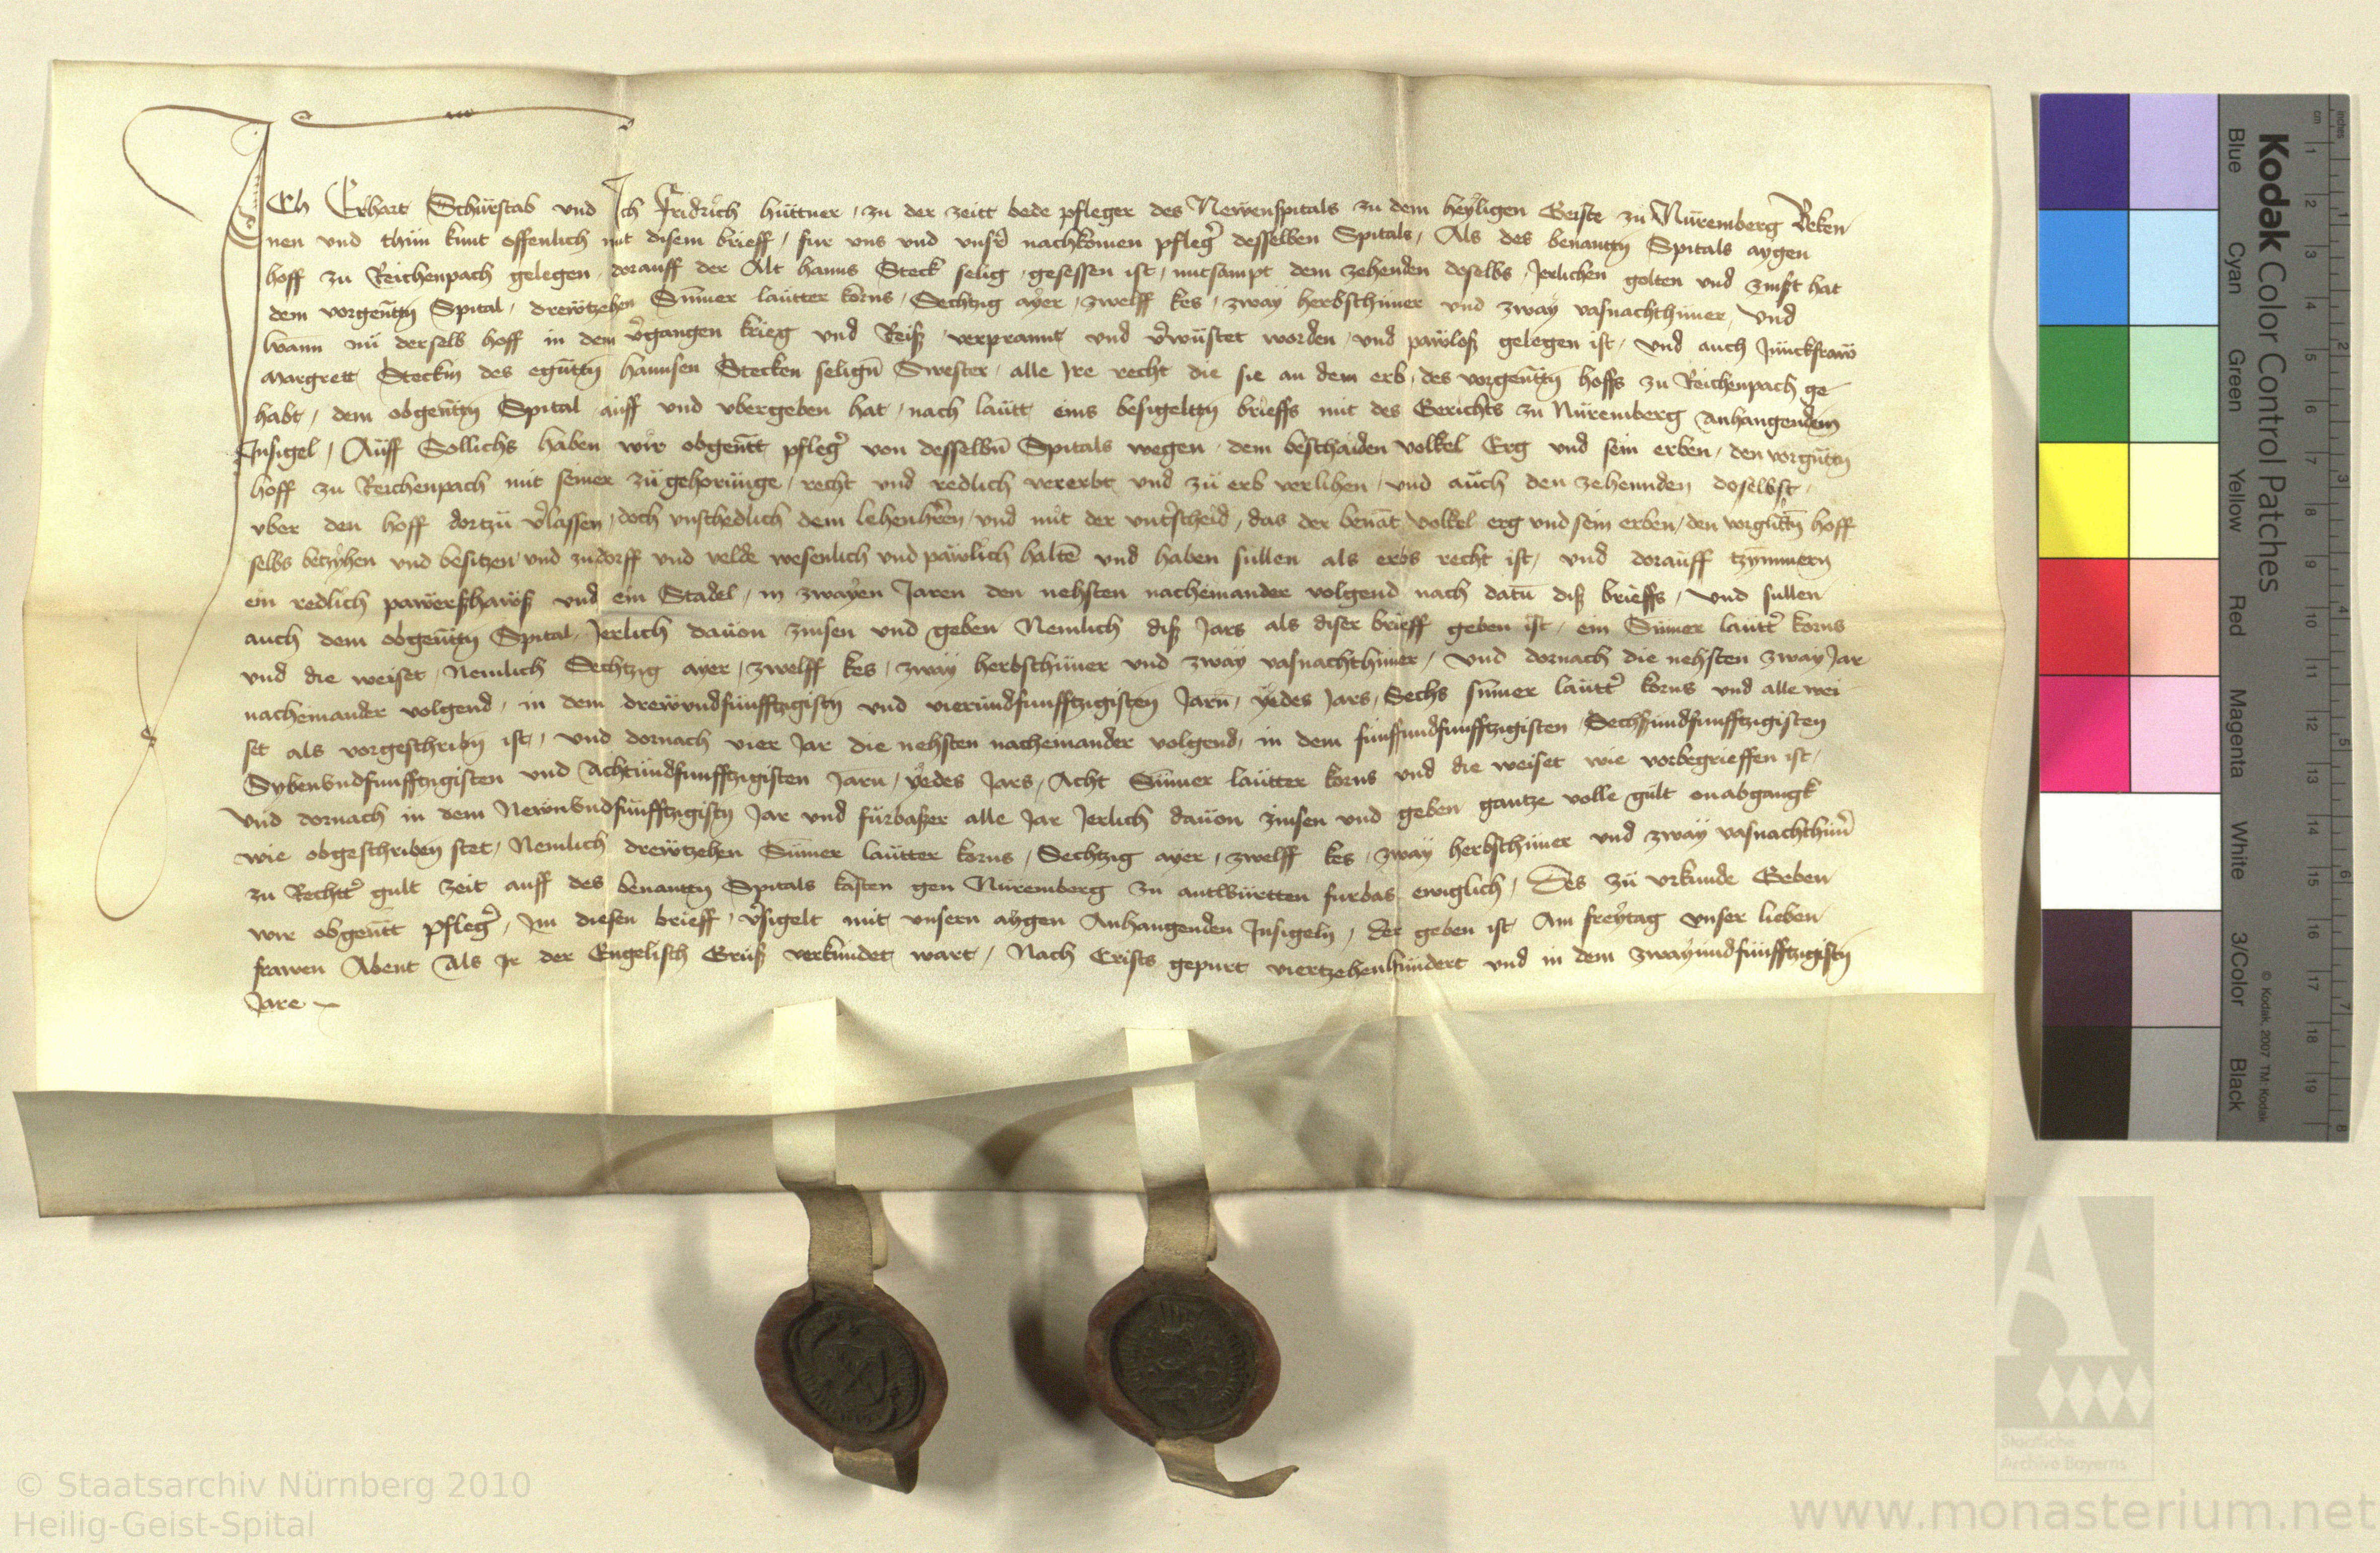 ICh Erhart Schürstab vnd Ich Fridrich hüttner / zu der zeitt bede pfleger des Newenspitals zu dem heyligen Geiste zu Nüremberg Beken
nen vnd thün kunt offenlich mit disem brieff / fur vns vnd vnsr̄ nachkomen pfleg̉ desselben Spitals / Als des benantn̄ Spitals aygen
hoff zu Reichenpach gelegen / dorauff der Alt hanns Steck selig / gesessen ist / mitsampt dem zehenden doselbs / Jerlichen golten vnd zinst hat
dem vorgen̄tn̄ Spital / drewtzehen Sum̄er lautter korns / Sechtzig ayer / zwelff kes / zway herbsthüner vnd zway vasnachthüner / Vnd
Wann nü derselb hoff in dem v̉gangen krieg vnd Reiß verprannt vnd v̉wüstet worden / vnd pawloß gelegen ist / vnd auch Junckfraw
Margrett Steckin des egn̄tn̄ hannsen Stecken selign̄ Swester / alle Ire recht die sie an dem erb / des vorgen̄tn̄ hoffs zu Reichenpach ge
habt / dem obgen̄tn̄ Spital auff vnd vbergeben hat / nach lautt eins besigeltn̄ brieffs mit des Gerichts zu Nüremberg Anhangendem
Insigel / Auff Sollichs haben wir obgen̄tt pfleg̉ von desselbn̄ Spitals wegen / dem beschaiden volkel Erg vnd sein erben / den vorgn̄tn̄
hoff zu Reichenpach mit seiner zügehorünge / recht vnd redlich vererbt vnd zü erb verlihen / vnd auch den zehennden doselbst /
vber den hoff dortzü v̉lassen / doch vnschedlich dem lehenhr̄en / vnd mit der vnt̉scheid / das der benāt volkel erg vnd sein erben / den vorgn̄tn̄ hoff
selbs betzyhen vnd besitzen vnd zu dorff vnd velde wesenlich vnd pawlich haltē vnd haben sullen als erbs recht ist / vnd dorauff tzymmern
ein redlich pawerßhawß vnd ein Stadel / in zwayen Jaren den nehsten nacheinander volgend nach datū diß brieffs / Vnd sullen
auch dem obgen̄tn̄ Spital / Jerlich dauon zinsen vnd geben Nemlich diß Jars als diser brieff geben ist / ein Sum̄er lautt̉ korns
vnd die weiset / Nemlich Sechtzig ayer / zwelff kes / zway herbsthüner vnd zway vasnachthüner / Vnd dornach die nehsten zway Jar
nacheinander volgend / in dem drewvndfünfftzigistn̄ vnd vierundfunfftzigisten Jarn̄ / yedes Jars / Sechs sum̄er lautt̉ korns vnd alle wei
set als vorgeschribn̄ ist / vnd dornach vier Jar die nehsten nacheinander volgend / in dem funffundfunfftzigisten / Sechßundfunfftzigisten
Sybenvndfunfftzigisten vnd Achtundfunfftzigisten Jarn̄ / yedes Jars / Acht Sum̄er lautter korns vnd die weiset wie vorbegrieffen ist /
Vnd dornach in dem Newnvndfünfftzigistn̄ Jar vnd fürbaßer alle Jar Jerlich dauon zinsen vnd geben gantze volle gült onabgangk
wie obgeschriben stet / Nemlich drewtzehen Sum̄er lautter korns / Sechtzig ayer / zwelff kes / zway herbsthüner vnd zway vasnachthün̉
zu Recht̉ gult zeit auff des benantn̄ Spitals kasten gen Nüremberg zu antwürtten furbas ewiglich / Des zü vrkunde Geben
wir obgen̄tt pfleg̉ / Im diesen brieff / v̉sigelt mit vnsern aygen Anhangenden Insigeln / Der geben ist Am freytag Vnser lieben
frawen Abent Als Ir der Engelisch Gruß verkündet wart / Nach Crists gepurt viertzehenhundert vnd in dem zwayundfünfftzigistn̄
Jare
Kodak Color Control Patches
Blue Cyan Green Yellow Red Magenta White 3/Color Black
© Kodak, 2007 TM: Kodak
cm 1 2 3 4 5 6 7 8 9 10 11 12 13 14 15 16 17 18 19
inches 1 2 3 4 5 6 7 8
Staatliche
Archive Bayerns
© Staatsarchiv Nürnberg 2010
Heilig-Geist-Spital
www.monasterium.net